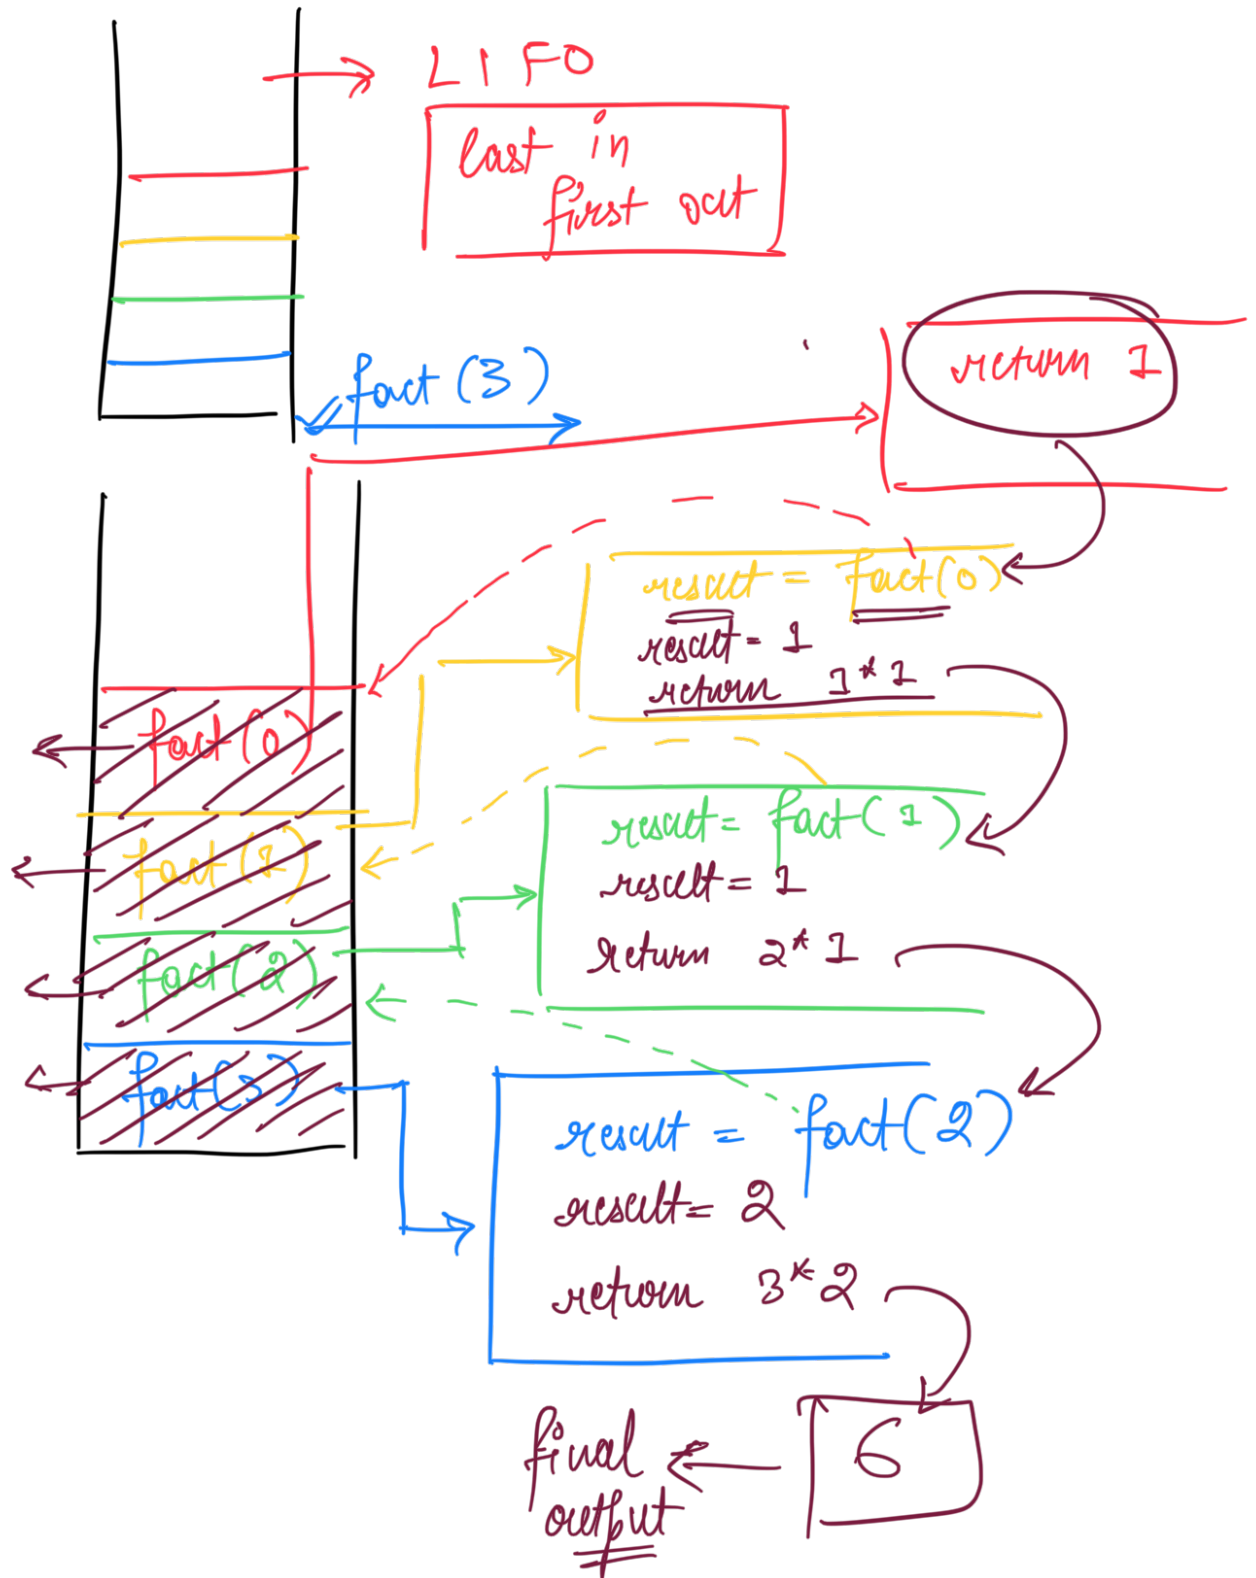 LIFO
last in
first out
fact(3)
return 1
result = fact(0)
result = 1
return 1*1
fact(0)
result = fact(1)
result = 1
return 2*1
fact(1)
fact(2)
fact(3)
result = fact(2)
result = 2
return 3*2
6
final
output